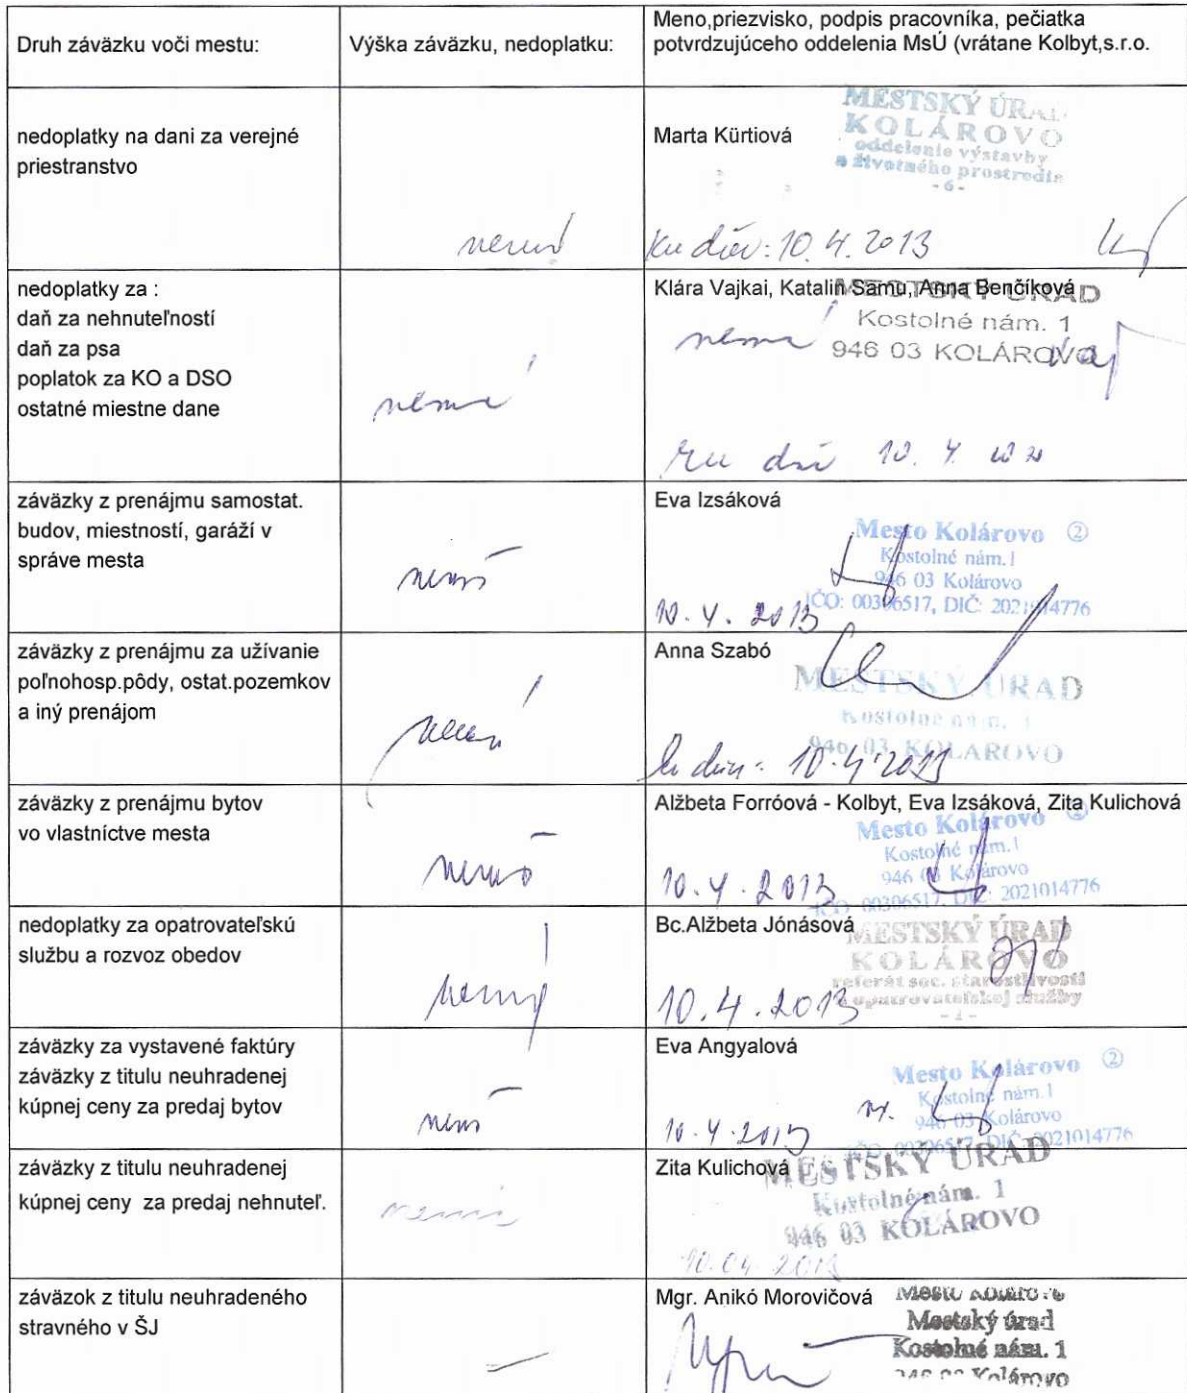 Druh záväzku voči mestu:
Výška záväzku, nedoplatku:
Meno,priezvisko, podpis pracovníka, pečiatka
potvrdzujúceho oddelenia MsÚ (vrátane Kolbyt,s.r.o.
nedoplatky na dani za verejné
priestranstvo
Marta Kürtiová
MESTSKÝ ÚRAD
KOLÁROVO
oddelenie výstavby
a životného prostredia
- 6 -
10. 4. 2013
nedoplatky za :
daň za nehnuteľností
daň za psa
poplatok za KO a DSO
ostatné miestne dane
nemá
Klára Vajkai, Katalin Samu, Anna Benčíková
MESTSKÝ ÚRAD
Kostolné nám. 1
946 03 KOLÁROVO
nemá
10. 4.
záväzky z prenájmu samostat.
budov, miestností, garáží v
správe mesta
nemá
Eva Izsáková
Mesto Kolárovo ②
Kostolné nám.1
946 03 Kolárovo
IČO: 00306517, DIČ: 2021014776
10. 4. 2013
záväzky z prenájmu za užívanie
poľnohosp.pôdy, ostat.pozemkov
a iný prenájom
nemá
Anna Szabó
MESTSKÝ ÚRAD
Kostolné nám. 1
946 03 KOLÁROVO
10.4.2013
záväzky z prenájmu bytov
vo vlastníctve mesta
nemá
Alžbeta Forróová - Kolbyt, Eva Izsáková, Zita Kulichová
Mesto Kolárovo ②
Kostolné nám.1
946 03 Kolárovo
IČO: 00306517, DIČ: 2021014776
10. 4. 2013
nedoplatky za opatrovateľskú
službu a rozvoz obedov
nemá
Bc.Alžbeta Jónásová
MESTSKÝ ÚRAD
KOLÁROVO
referát soc. starostlivosti
a opatrovateľskej služby
10. 4. 2013
záväzky za vystavené faktúry
záväzky z titulu neuhradenej
kúpnej ceny za predaj bytov
nemá
Eva Angyalová
Mesto Kolárovo ②
Kostolné nám.1
946 03 Kolárovo
IČO: 00306517, DIČ: 2021014776
10. 4. 2013
záväzky z titulu neuhradenej
kúpnej ceny za predaj nehnuteľ.
nemá
Zita Kulichová
MESTSKÝ ÚRAD
Kostolné nám. 1
946 03 KOLÁROVO
10.04.2013
záväzok z titulu neuhradeného
stravného v ŠJ
Mgr. Anikó Morovičová
Mesto Kolárovo
Mestský úrad
Kostolné nám. 1
946 03 Kolárovo